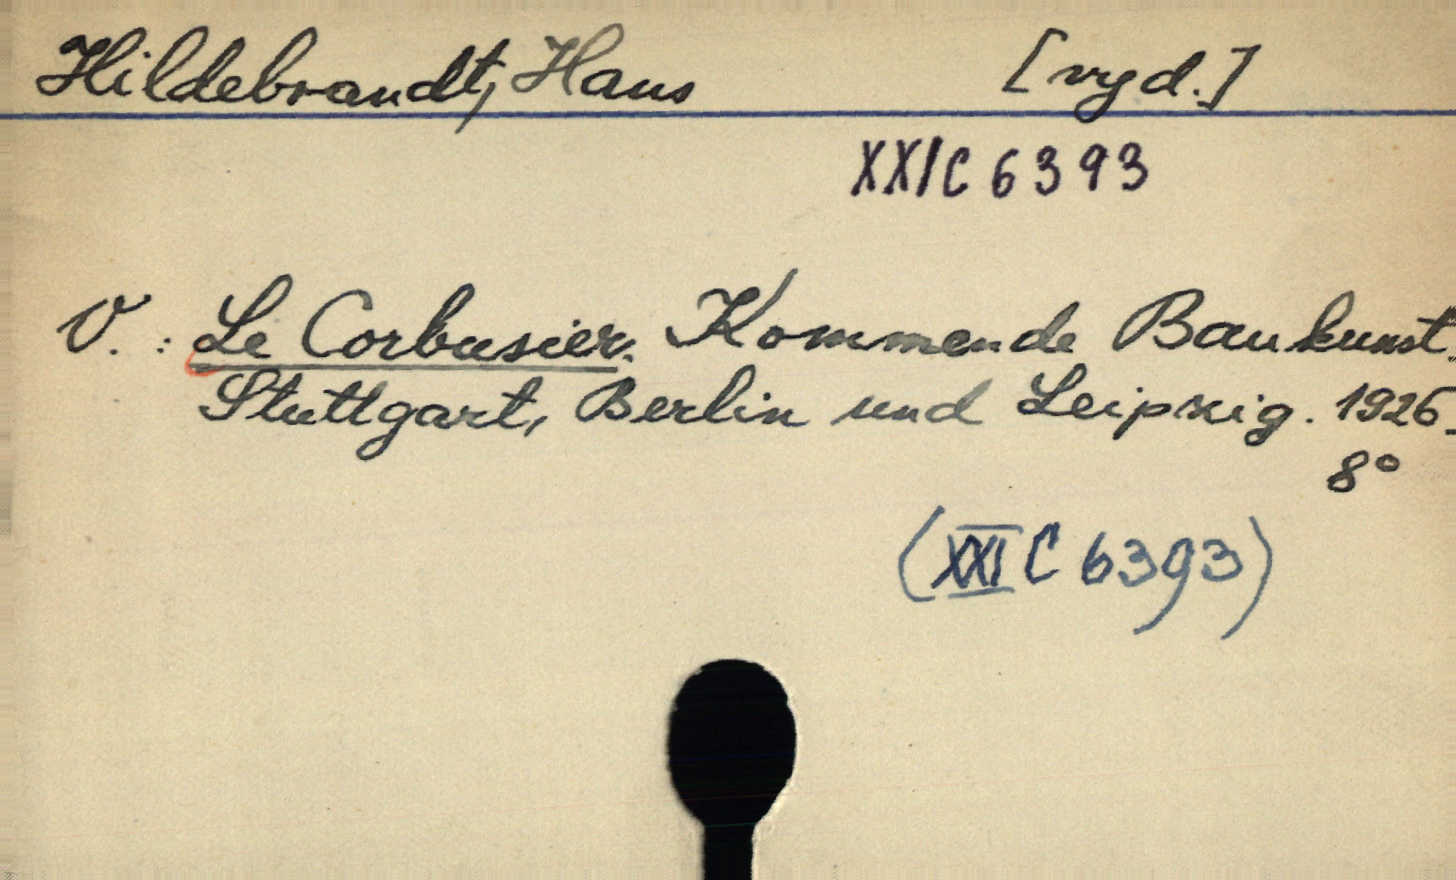 Hildebrandt, Hans [vyd.]
XXI C 6393
V. : Le Corbusier. Kommende Baukunst.
Stuttgart, Berlin und Leipzig. 1926.
8°
(XXI C 6393)